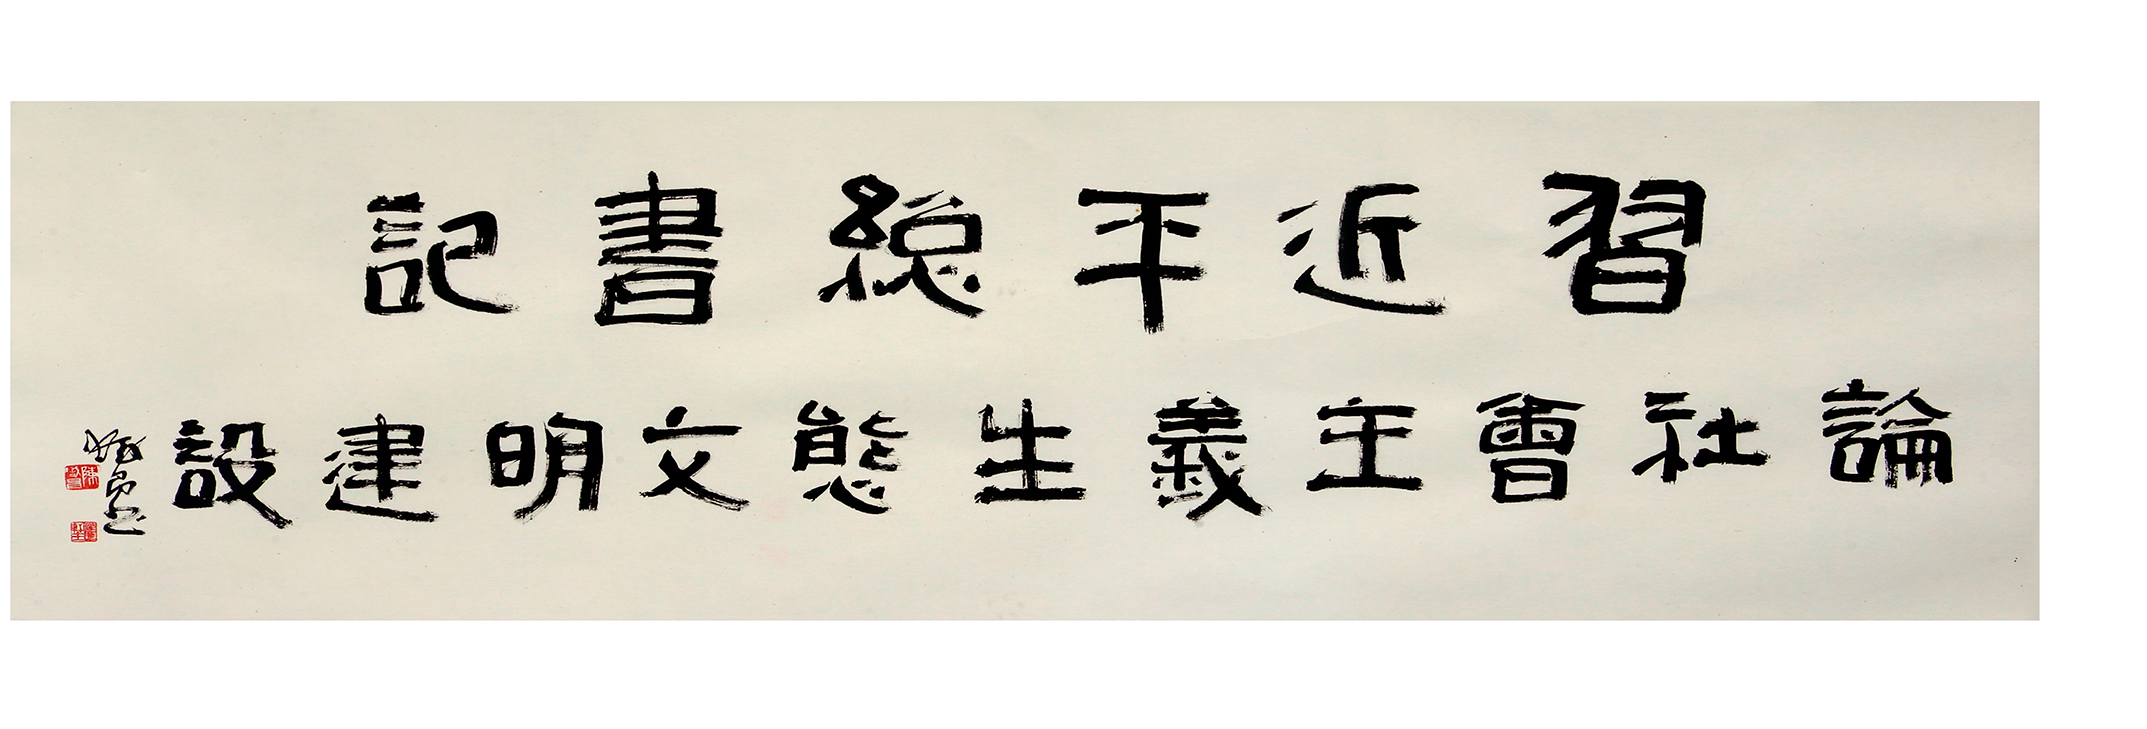 習近平總書記
論社會主義生態文明建設